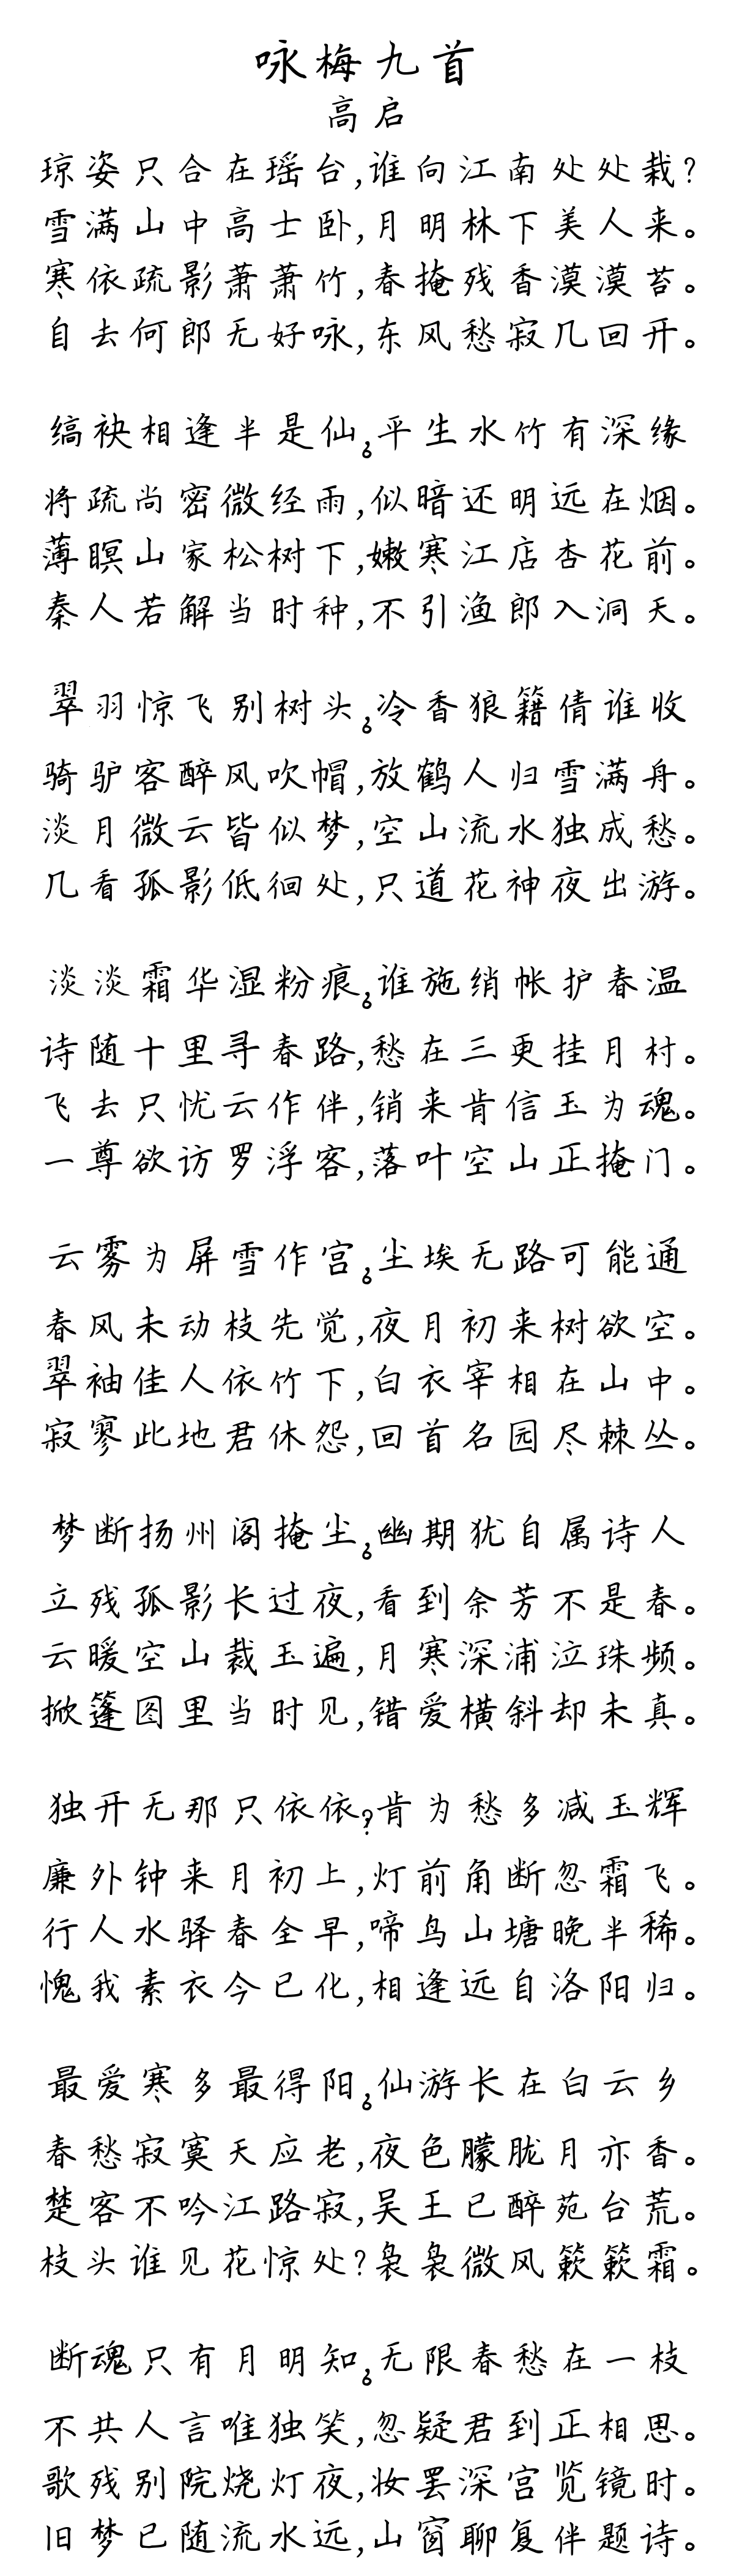 咏梅九首
高启
琼姿只合在瑶台,谁向江南处处栽?
雪满山中高士卧,月明林下美人来。
寒依疏影萧萧竹,春掩残香漠漠苔。
自去何郎无好咏,东风愁寂几回开。
缟袂相逢半是仙,平生水竹有深缘。
将疏尚密微经雨,似暗还明远在烟。
薄暝山家松树下,嫩寒江店杏花前。
秦人若解当时种,不引渔郎入洞天。
翠羽惊飞别树头,冷香狼籍倩谁收。
骑驴客醉风吹帽,放鹤人归雪满舟。
淡月微云皆似梦,空山流水独成愁。
几看孤影低徊处,只道花神夜出游。
淡淡霜华湿粉痕,谁施绡帐护春温。
诗随十里寻春路,愁在三更挂月村。
飞去只忧云作伴,销来肯信玉为魂。
一尊欲访罗浮客,落叶空山正掩门。
云雾为屏雪作宫,尘埃无路可能通。
春风未动枝先觉,夜月初来树欲空。
翠袖佳人依竹下,白衣宰相在山中。
寂寥此地君休怨,回首名园尽棘丛。
梦断扬州阁掩尘,幽期犹自属诗人。
立残孤影长过夜,看到余芳不是春。
云暖空山裁玉遍,月寒深浦泣珠频。
掀篷图里当时见,错爱横斜却未真。
独开无那只依依,肯为愁多减玉辉?
廉外钟来月初上,灯前角断忽霜飞。
行人水驿春全早,啼鸟山塘晚半稀。
愧我素衣今已化,相逢远自洛阳归。
最爱寒多最得阳,仙游长在白云乡。
春愁寂寞天应老,夜色朦胧月亦香。
楚客不吟江路寂,吴王已醉苑台荒。
枝头谁见花惊处?袅袅微风簌簌霜。
断魂只有月明知,无限春愁在一枝。
不共人言唯独笑,忽疑君到正相思。
歌残别院烧灯夜,妆罢深宫览镜时。
旧梦已随流水远,山窗聊复伴题诗。